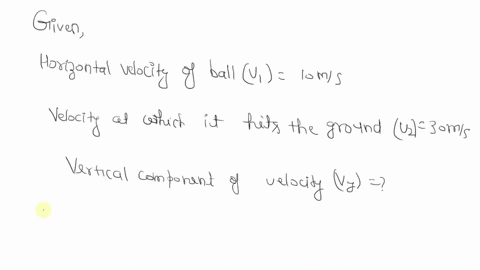 Given,
Horizontal velocity of ball (V₁) = 10 m/s
Velocity at which it hits the ground (V₂) = 30 m/s
Vertical component of velocity (Vy) = ?